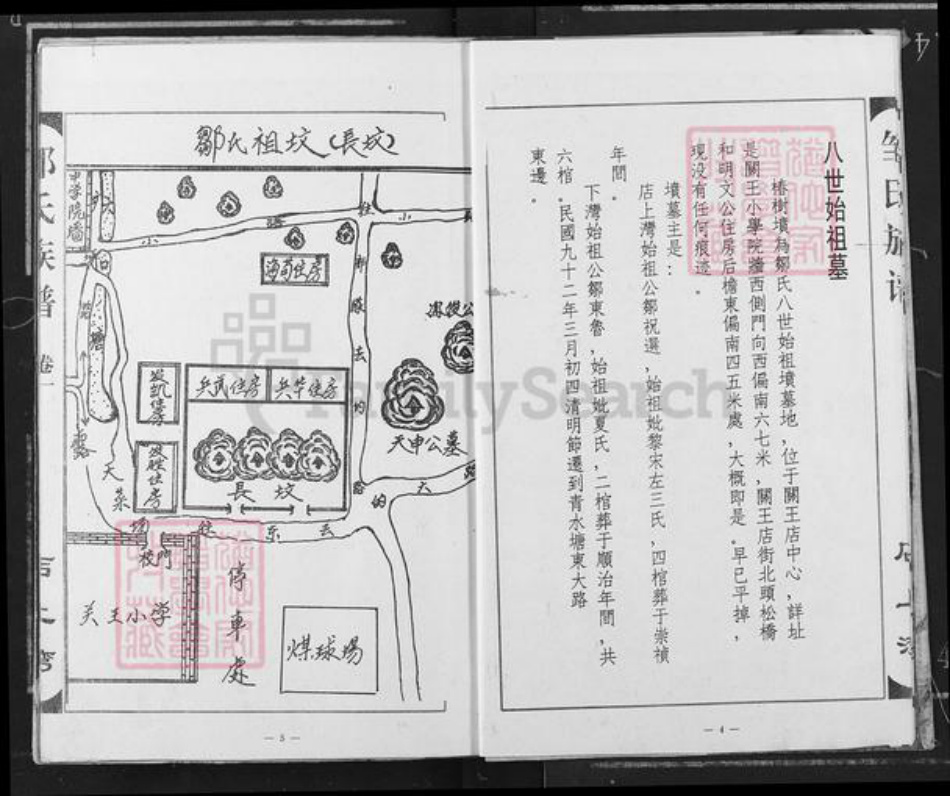 八世始祖墓
椿樹墳為鄒氏八世始祖墳墓地，位于關王店中心，詳址
是關王小學院牆西側門向西偏南六七米，關王店街北頭松橋
和明文公住房后檐東偏南四五米處，大概即是。早已平掉，
現没有任何痕迹。
墳墓主是：
店上灣始祖公鄒祝選，始祖妣黎宋左三氏，四棺葬于崇禎
年間。
下灣始祖公鄒東魯，始祖妣夏氏，二棺葬于順治年間，共
六棺。民國九十二年三月初四清明節遷到青水塘東大路
東邊。
—4—
鄒氏祖坟(長坟)
中学院牆
小
路
往
小
海苟住房
兵武住房
兵华住房
发凯住房
发胜住房
長坟
天申公墓
去
的
路
的
大
路
天
菜
往
东
去
校門
关王小学
停車處
煤球場
氏族谱
卷一
—5—
FamilySearch